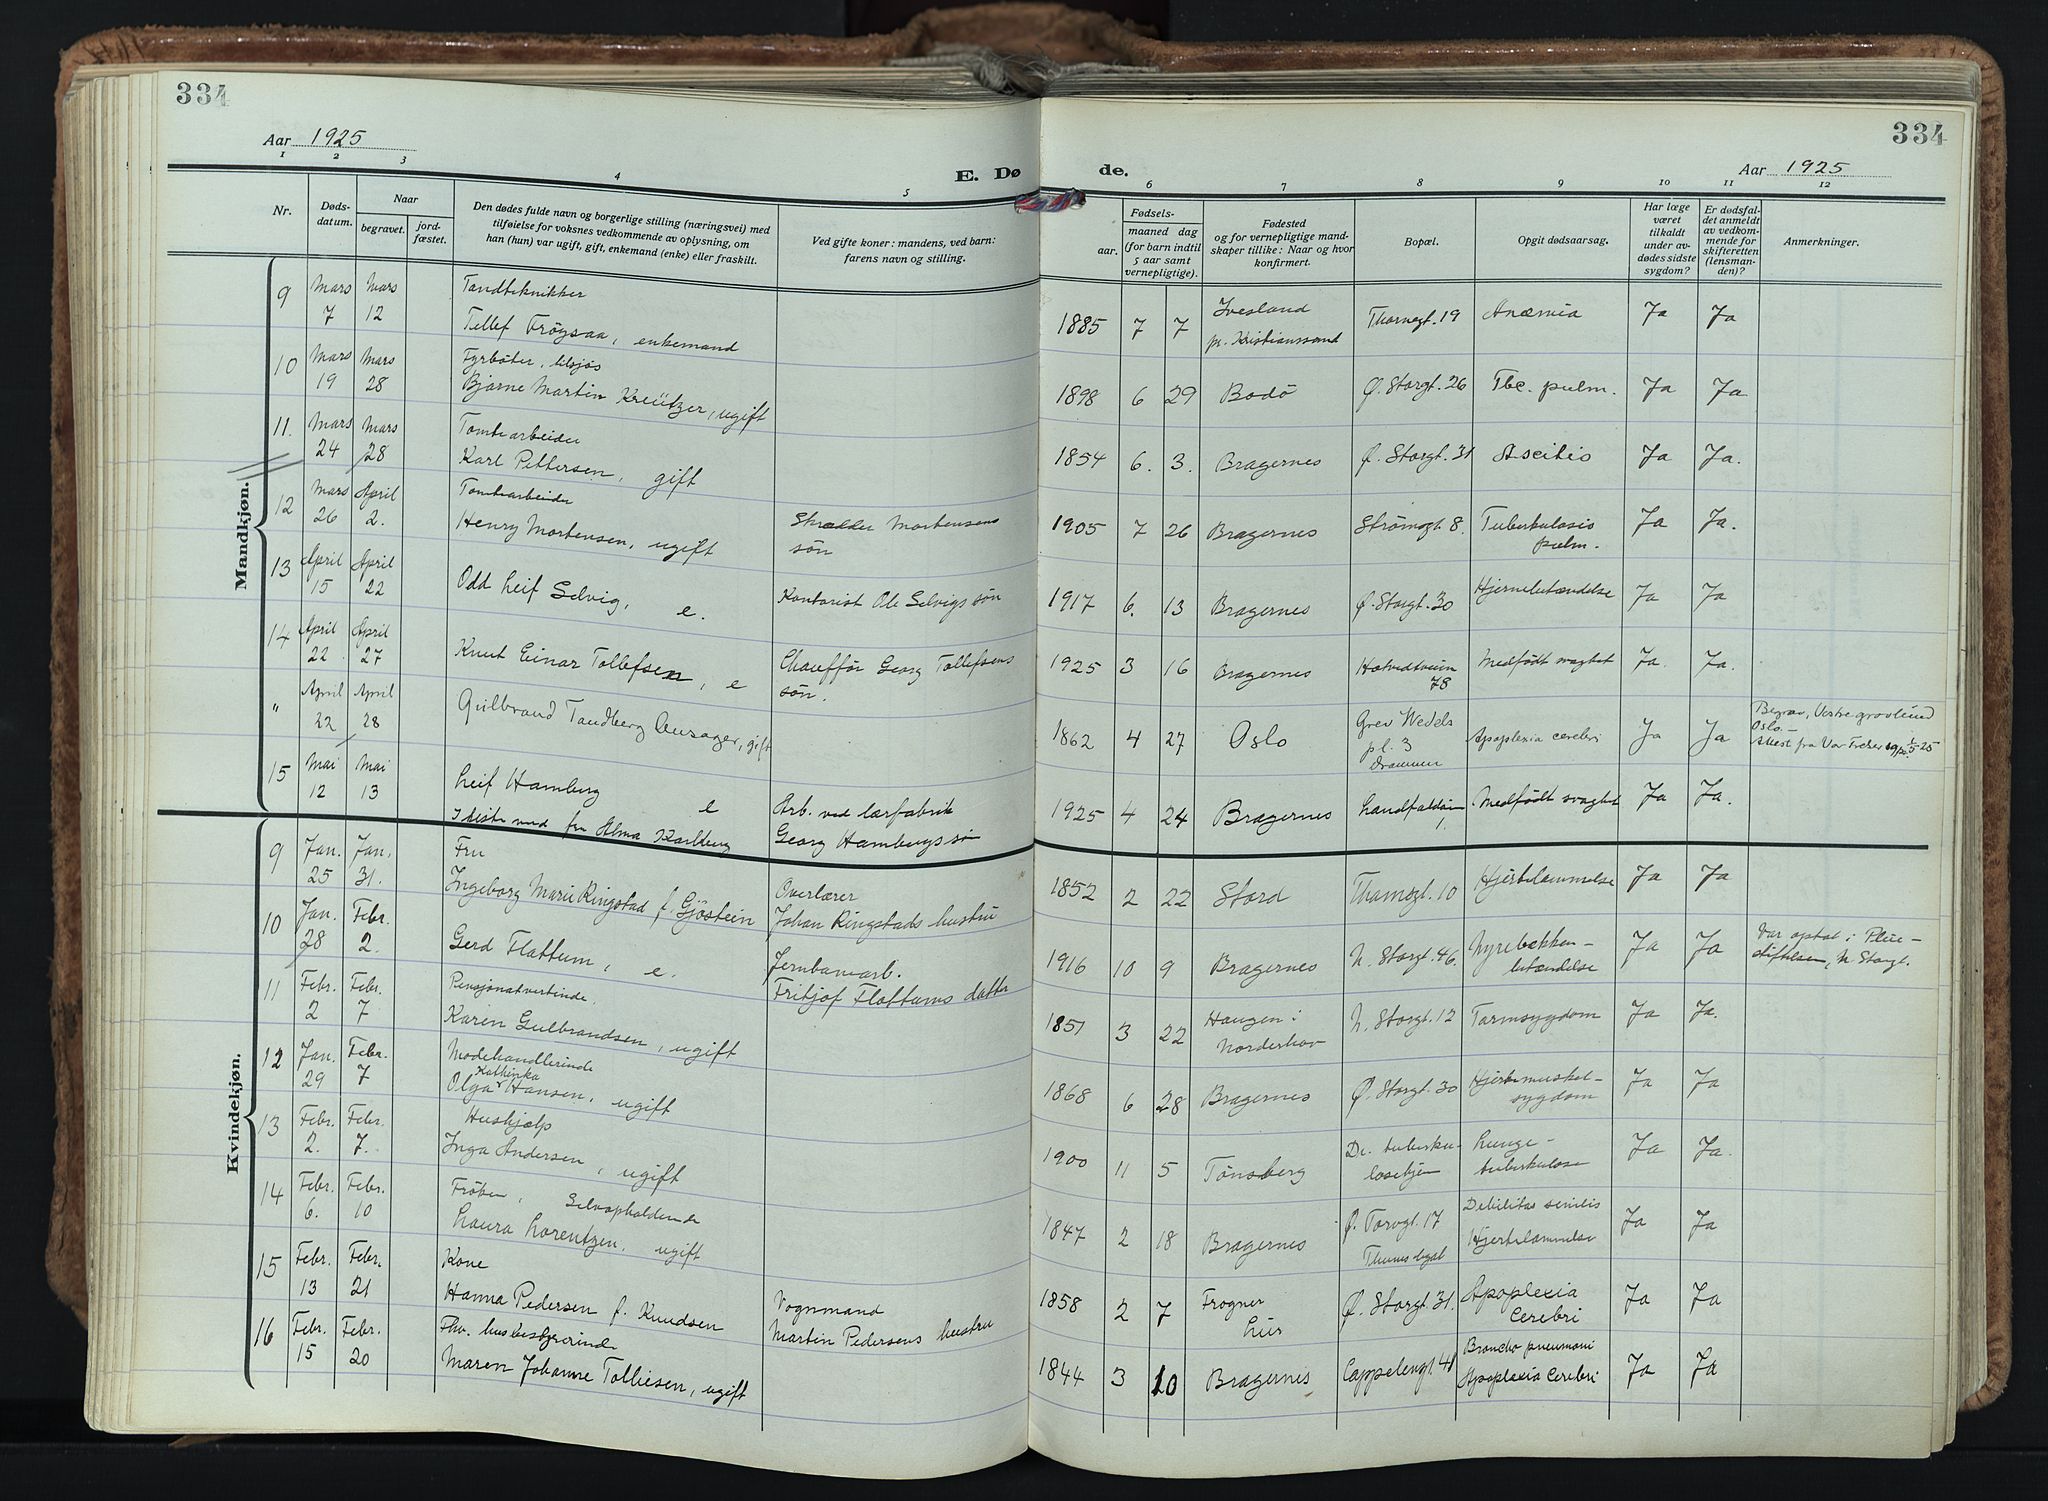 334
334
Aar 1925
E. Dø
de.
Aar 1925
1 2 3 4 5 6 7 8 9 10 11 12
Nr.
Døds-
datum.
Naar
begravet.
jord-
fæstet.
Den dødes fulde navn og borgerlige stilling (næringsvei) med
tilføielse for voksnes vedkommende av oplysning, om
han (hun) var ugift, gift, enkemand (enke) eller fraskilt.
Ved gifte koner: mandens, ved barn:
farens navn og stilling.
Fødsels-
aar.
maaned dag
(for barn indtil
5 aar samt
vernepligtige).
Fødested
og for vernepligtige mand-
skaper tillike: Naar og hvor
konfirmert.
Bopæl.
Opgit dødsaarsag.
Har læge
været
tilkaldt
under av-
dødes sidste
sygdom?
Er dødsfal-
det anmeldt
av vedkom-
mende for
skifteretten
(lensman-
den)?
Anmerkninger.
Mandkjøn.
9 Mars 7 Mars 12 Tandteknikker
Tellef Frøysaa, enkemand 1885 7 7 Ivesland
pr. Kristianssand Thornegt. 19 Anæmia Ja Ja
10 Mars 19 Mars 28 Fyrbøter, tilsjøs
Bjarne Martin Kreützer, ugift 1898 6 29 Bodö Ø. Storgt. 26 Tbc. pulm. Ja Ja
11. Mars 24 Mars 28 Tomtearbeider
Karl Pettersen, gift 1854 6. 3. Bragernes Ø. Storgt. 31 Ascitis Ja Ja.
12 Mars 26 April 2. Tomtearbeider
Henry Mortensen, ugift Skrædder Mortensens
søn 1905 7 26 Bragernes Strömsgt 8. Tuberkulosis
pulm. Ja Ja.
13 April 15 April 22 Odd Leif Selvig, e. Kontorist Ole Selvigs søn 1917 6. 13 Bragernes Ø. Storgt. 30 Hjernebetændelse Ja Ja
14 April 22 April 27 Knut Einar Tollefsen, e Chauffør Georg Tollefsens
søn. 1925 3 16 Bragernes 78 Medfödt svaghet Ja Ja.
" April 22 April 28 Gulbrand Tandberg, gift 1862 4 27 Oslo Grev Wedels
pl. 3
Drammen Apoplexia cerebri Ja Ja Begrav. Vestre gravlund
Oslo.-
Attest fra Vor Frelser
15 Mai 12 Mai 13 Leif Hamberg e
I kiste med fru Alma Karlberg Arb. ved lærfabrik
Georg Hambergs søn 1925 4 24 Bragernes 1. Medfödt svaghet Ja Ja.
Kvindekjøn.
9 Jan. 25 Jan. 31. Fru
Ingeborg Marie Ringstad f. Gjöstein Overlærer
Johan Ringstads hustru 1852 2 22 Stord Thamsgt. 10 Hjertelammelse Ja Ja
10 Jan. 28 Febr. 2. Gerd Flattum, e. Jernbanearb.
Fritjof Flattums datter 1916 10 9 Bragernes N. Storgt. 46. Nyrebækken-
betændelse Ja Ja Var optat i Pleie-
stiftelsen, N. Storgt.
11 Febr. 2 Febr. 7 Pensjonatvertinde.
Karen Gulbrandsen, ugift 1851 3 22 Haugen i
Norderhov N. Storgt. 12 Tarmsygdom Ja Ja.
12 Jan. 29 Febr. 7 Modehandlerinde
Kathinka
Olga Hansen, ugift 1868 6 28 Bragernes Ø. Storgt. 30 Hjertemuskel-
sygdom Ja Ja
13 Febr. 2. Febr. 7. Hushjælp
Inga Andersen, ugift 1900 11 5 Tønsberg Dr. tuberku-
losehjem Lunge-
tuberkulose Ja Ja.
14 Febr. 6. Febr. 10 Fröken, Selvopholdende
Laura Lorentzen, ugift 1847 2 18 Bragernes Ø. Torvgt. 17
Thams legat Debilitas senilis
Hjertelammelse Ja Ja
15 Febr. 13 Febr. 21 Kone
Hanna Pedersen f. Knudsen Vognmand
Martin Pedersens hustru 1858 2 7 Frogner
Lier Ø. Storgt. 31. Apoplexia
Cerebri Ja Ja
16 Febr. 15 Febr. 20 Fhv. husbestyrerinde
Maren Johanne Tolliesen, ugift 1844 3 10 Bragernes Cappelengt. 41 Broncho pneumoni
Apoplexia Cerebri Ja Ja